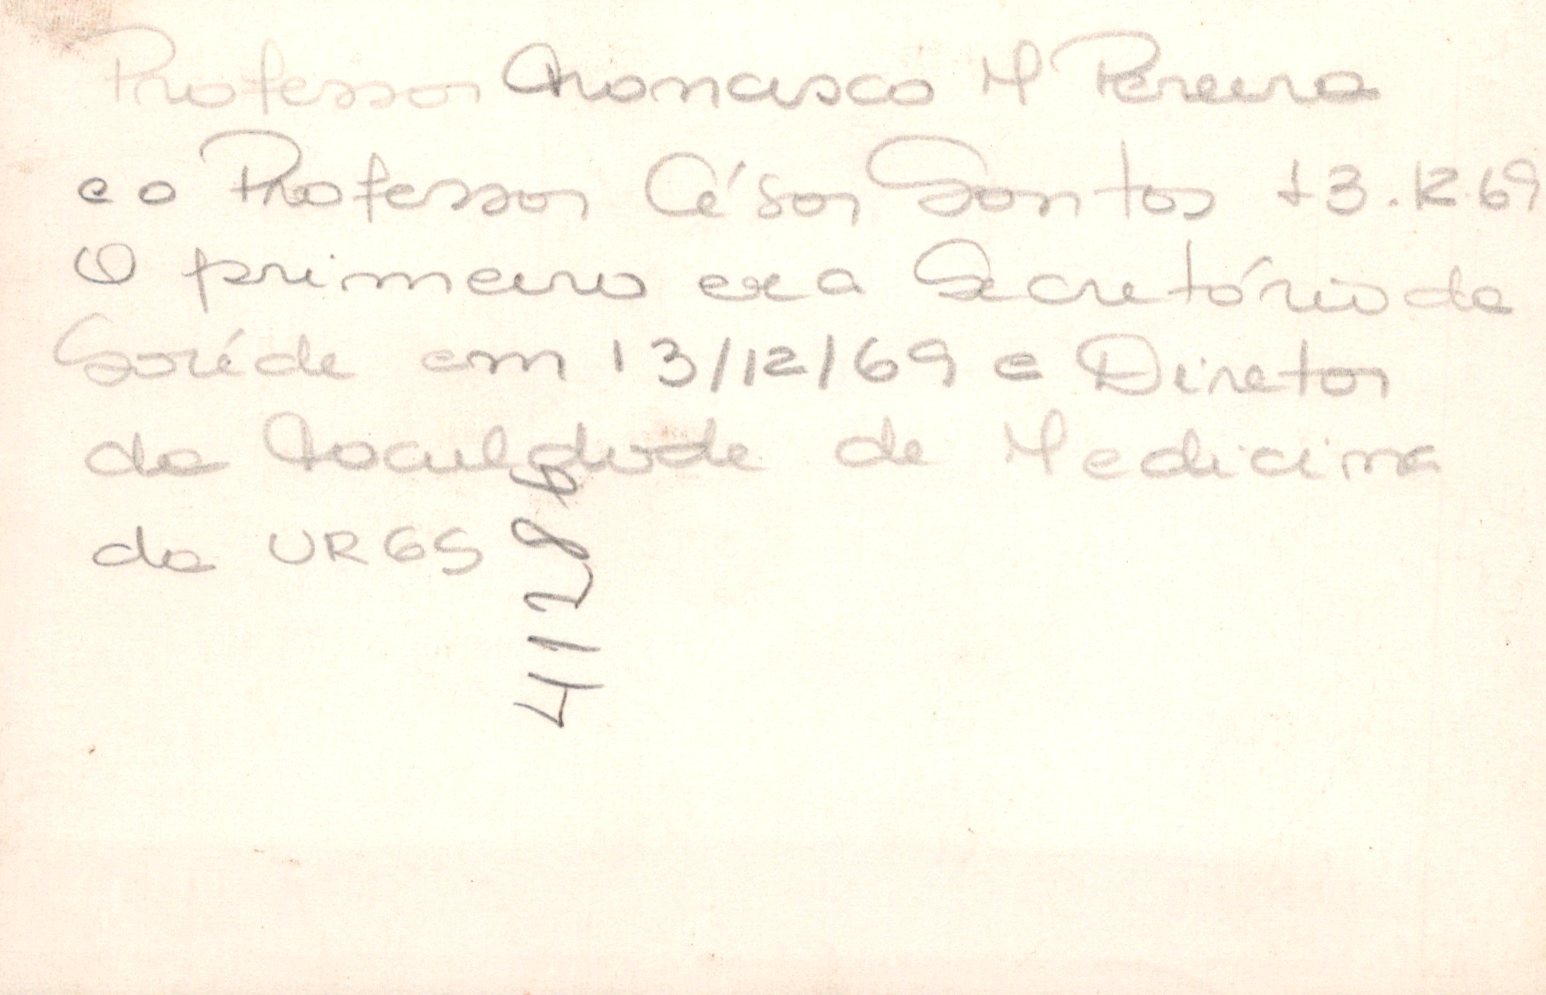 Professor Francisco M Pereira
e o Professor César Santos 13.12.69
O primeiro era Secretário da
Saúde em 13/12/69 e Diretor
da Faculdade de Medicina
da URGS